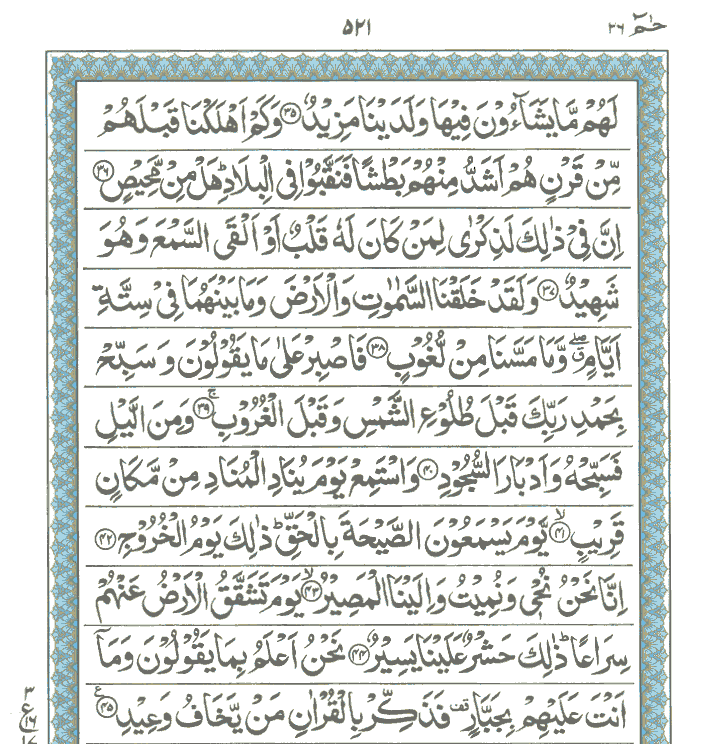 حٰمٓ ٢٦
٥٢١
لَهُمۡ مَّا يَشَآءُوۡنَ فِيۡهَا وَلَدَيۡنَا مَزِيۡدٌ ﴿٣٥﴾ وَكَمۡ اَهۡلَكۡنَا قَبۡلَهُمۡ
مِّنۡ قَرۡنٍ هُمۡ اَشَدُّ مِنۡهُمۡ بَطۡشًا فَنَقَّبُوۡا فِى الۡبِلَادِ ؕ هَلۡ مِنۡ مَّحِيۡصٍ ﴿٣٦﴾
اِنَّ فِىۡ ذٰلِكَ لَذِكۡرٰى لِمَنۡ كَانَ لَهٗ قَلۡبٌ اَوۡ اَلۡقَى السَّمۡعَ وَهُوَ
شَهِيۡدٌ ﴿٣٧﴾ وَلَقَدۡ خَلَقۡنَا السَّمٰوٰتِ وَالۡاَرۡضَ وَمَا بَيۡنَهُمَا فِىۡ سِتَّةِ
اَيَّامٍ ۖ وَّمَا مَسَّنَا مِنۡ لُّغُوۡبٍ ﴿٣٨﴾ فَاصۡبِرۡ عَلٰى مَا يَقُوۡلُوۡنَ وَسَبِّحۡ
بِحَمۡدِ رَبِّكَ قَبۡلَ طُلُوۡعِ الشَّمۡسِ وَقَبۡلَ الۡغُرُوۡبِ ۚ ﴿٣٩﴾ وَمِنَ الَّيۡلِ
فَسَبِّحۡهُ وَاَدۡبَارَ السُّجُوۡدِ ﴿٤٠﴾ وَاسۡتَمِعۡ يَوۡمَ يُنَادِ الۡمُنَادِ مِنۡ مَّكَانٍ
قَرِيۡبٍ ۙ ﴿٤١﴾ يَّوۡمَ يَسۡمَعُوۡنَ الصَّيۡحَةَ بِالۡحَقِّ ؕ ذٰلِكَ يَوۡمُ الۡخُرُوۡجِ ﴿٤٢﴾
اِنَّا نَحۡنُ نُحۡىٖ وَنُمِيۡتُ وَاِلَيۡنَا الۡمَصِيۡرُ ۙ ﴿٤٣﴾ يَوۡمَ تَشَقَّقُ الۡاَرۡضُ عَنۡهُمۡ
سِرَاعًا ؕ ذٰلِكَ حَشۡرٌ عَلَيۡنَا يَسِيۡرٌ ﴿٤٤﴾ نَحۡنُ اَعۡلَمُ بِمَا يَقُوۡلُوۡنَ وَمَاۤ
اَنۡتَ عَلَيۡهِمۡ بِجَبَّارٍ قف فَذَكِّرۡ بِالۡقُرۡاٰنِ مَنۡ يَّخَافُ وَعِيۡدِ ﴿٤٥﴾ ع
٣
ع
١٦
١٧